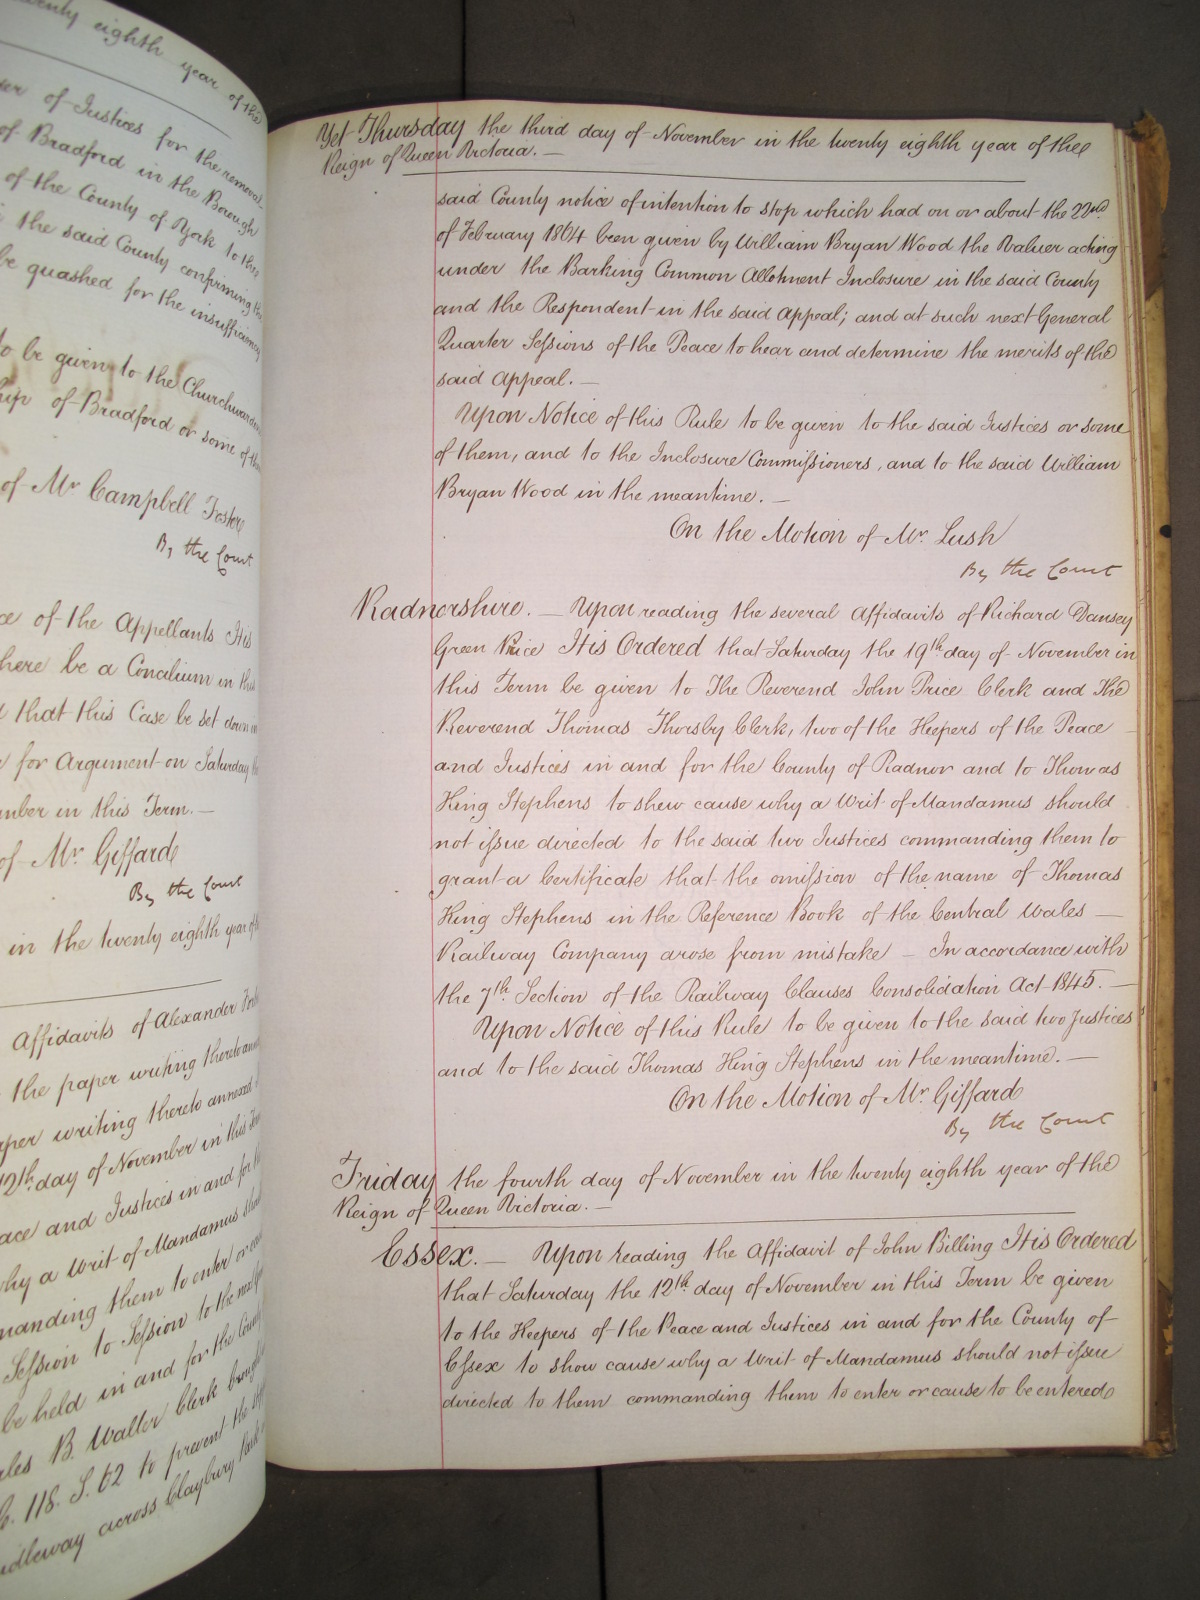 twenty eighth year of the
of Justices for the removal
of Bradford in the Borough
of the County of York to the
the said County confirming the
be quashed for the insufficiency
to be given to the Churchwardens
of Bradford or some of them
of Mr. Campbell Foster
By the Court
of the Appellants It is
there be a Concilium in this
that this Case be set down
for Argument on Saturday the
in this Term. —
of Mr. Giffard
By the Court
in the twenty eighth year of the
Affidavits of Alexander
the paper writing thereto
writing thereto annexed
12th day of November in this
and Justices in and for the
why a Writ of Mandamus
them to enter or
Session to Session to the
be held in and for the County
B. Waller Clerk
118. S. 62 to prevent the
across Claybury
Yet Thursday the third day of November in the twenty eighth year of the
Reign of Queen Victoria. —
said County notice of intention to stop which had on or about the 22nd
of February 1864 been given by William Bryan Wood the Valuer acting
under the Barking Common Allotment Inclosure in the said County
and the Respondent in the said Appeal; and at such next General
Quarter Sessions of the Peace to hear and determine the merits of the
said Appeal. —
Upon Notice of this Rule to be given to the said Justices or some
of them, and to the Inclosure Commissioners, and to the said William
Bryan Wood in the meantime. —
On the Motion of Mr. Lush
By the Court
Radnorshire. — Upon reading the several Affidavits of Richard Dansey
Green Price It is Ordered that Saturday the 19th day of November in
this Term be given to The Reverend John Price Clerk and The
Reverend Thomas Thorsby Clerk, two of the Keepers of the Peace
and Justices in and for the County of Radnor and to Thomas
King Stephens to shew cause why a Writ of Mandamus should
not issue directed to the said two Justices commanding them to
grant a Certificate that the omission of the name of Thomas
King Stephens in the Reference Book of the Central Wales —
Railway Company arose from mistake — In accordance with
the 7th Section of the Railway Clauses Consolidation Act 1845. —
Upon Notice of this Rule to be given to the said two Justices
and to the said Thomas King Stephens in the meantime. —
On the Motion of Mr. Giffard
By the Court
Friday the fourth day of November in the twenty eighth year of the
Reign of Queen Victoria. —
Essex. — Upon reading the Affidavit of John Billing It is Ordered
that Saturday the 12th day of November in this Term be given
to the Keepers of the Peace and Justices in and for the County of
Essex to show cause why a Writ of Mandamus should not issue
directed to them commanding them to enter or cause to be entered